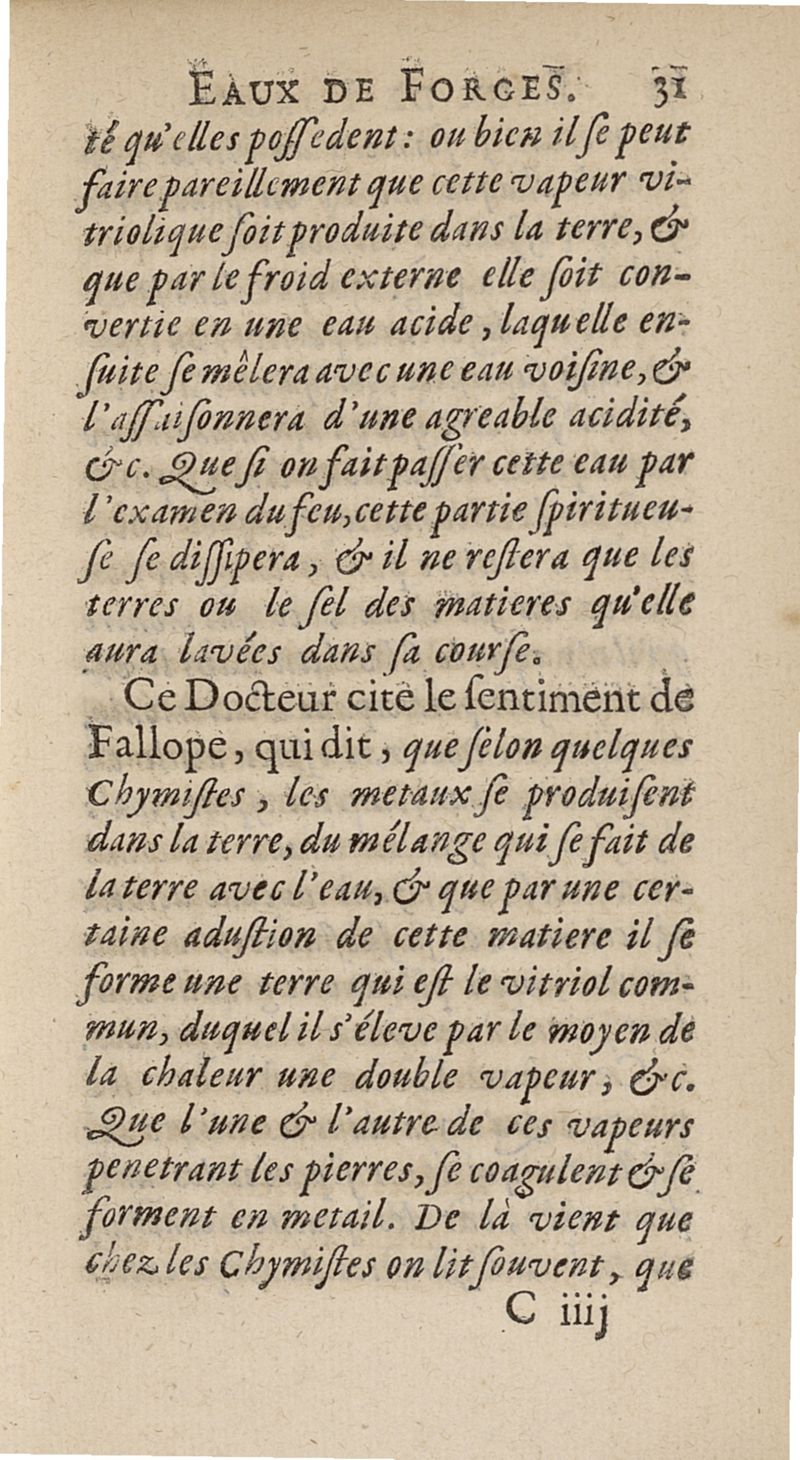 EAUX DE FORGES. 31
té qu'elles poſſedent: ou bien il ſe peut
faire pareillement que cette vapeur vi-
triolique ſoit produite dans la terre, &
que par le froid externe elle ſoit con-
vertie en une eau acide, laquelle en-
ſuite ſe mêlera avec une eau voiſine, &
l'aſſaiſonnera d'une agreable acidité,
&c. Que ſi on fait paſſer cette eau par
l'examen du feu, cette partie ſpiritueu-
ſe ſe diſſipera, & il ne reſtera que les
terres ou le ſel des matieres qu'elle
aura lavées dans ſa courſe.
Ce Docteur cite le ſentiment de
Fallope, qui dit, que ſelon quelques
Chymiſtes, les metaux ſe produiſent
dans la terre, du mélange qui ſe fait de
la terre avec l'eau, & que par une cer-
taine aduſtion de cette matiere il ſe
forme une terre qui eſt le vitriol com-
mun, duquel il s'éleve par le moyen de
la chaleur une double vapeur, &c.
Que l'une & l'autre de ces vapeurs
penetrant les pierres, ſe coagulent & ſe
forment en metail. De là vient que
chez les Chymiſtes on lit ſouvent, que
C iiij